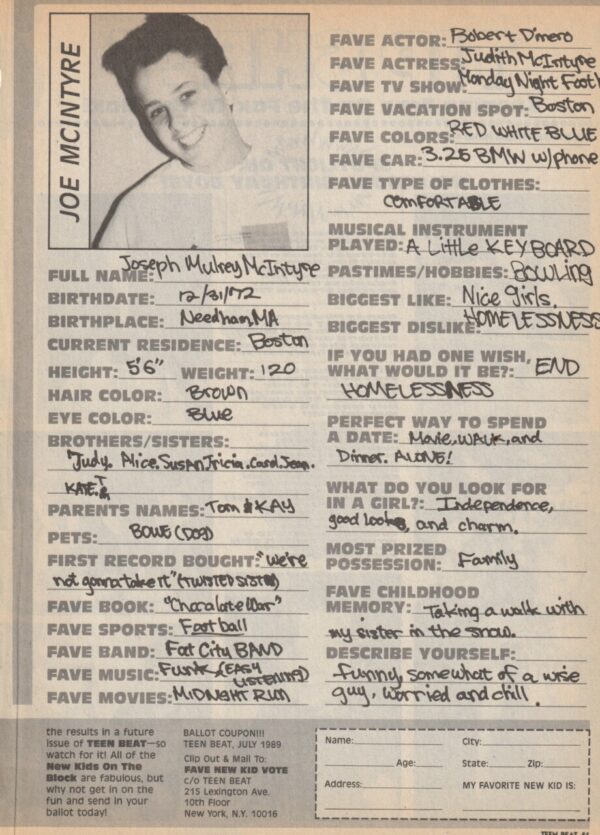 JOE MCINTYRE
FULL NAME: Joseph Mulrey McIntyre
BIRTHDATE: 12/31/72
BIRTHPLACE: Needham, MA
CURRENT RESIDENCE: Boston
HEIGHT: 5'6" WEIGHT: 120
HAIR COLOR: Brown
EYE COLOR: Blue
BROTHERS/SISTERS:
Judy. Alice. Susan. Tricia. Carol. Jean.
KATE. T
PARENTS NAMES: Tom & KAY
PETS: BOWE (DOG)
FIRST RECORD BOUGHT: "We're
not gonna take it" (TWISTED SISTER)
FAVE BOOK: "Chocalate War"
FAVE SPORTS: Football
FAVE BAND: Fat City BAND
FAVE MUSIC: Funk (EASY
LISTENING)
FAVE MOVIES: MIDNIGHT RUN
FAVE ACTOR: Robert Dinero
FAVE ACTRESS: Judith McIntyre
FAVE TV SHOW: Monday Night Footb
FAVE VACATION SPOT: Boston
FAVE COLORS: RED WHITE BLUE
FAVE CAR: 3.25 BMW w/phone
FAVE TYPE OF CLOTHES:
COMFORTABLE
MUSICAL INSTRUMENT
PLAYED: A Little KEYBOARD
PASTIMES/HOBBIES: BOWLING
BIGGEST LIKE: Nice girls.
BIGGEST DISLIKE: HOMELESSNESS
IF YOU HAD ONE WISH,
WHAT WOULD IT BE?: END
HOMELESSNESS
PERFECT WAY TO SPEND
A DATE: Movie, WALK, and
Dinner. ALONE!
WHAT DO YOU LOOK FOR
IN A GIRL?: Independence,
good looks, and charm.
MOST PRIZED
POSSESSION: Family
FAVE CHILDHOOD
MEMORY: Taking a walk with
my sister in the snow.
DESCRIBE YOURSELF:
funny, somewhat of a wise
guy, worried and chill.
the results in a future
issue of TEEN BEAT—so
watch for it! All of the
New Kids On The
Block are fabulous, but
why not get in on the
fun and send in your
ballot today!
BALLOT COUPON!!!
TEEN BEAT, JULY 1989
Clip Out & Mail To:
FAVE NEW KID VOTE
c/o TEEN BEAT
215 Lexington Ave.
10th Floor
New York, N.Y. 10016
Name: City:
Age: State: Zip:
Address: MY FAVORITE NEW KID IS:
TEEN BEAT